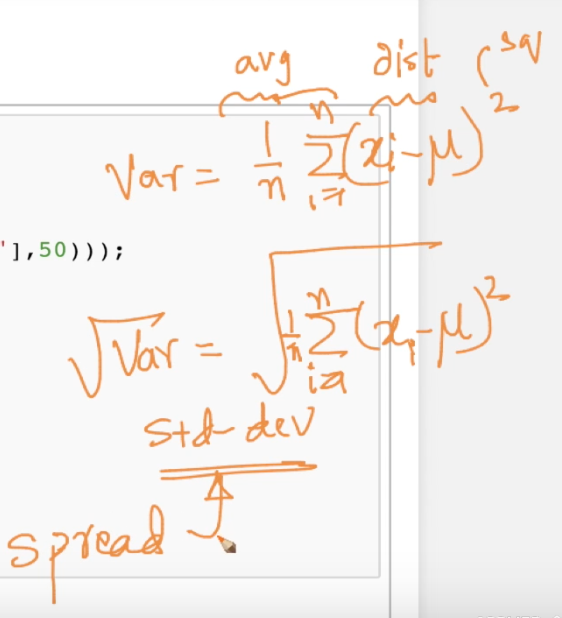 avg dist sq
Var = 1/n n∑i=1 (xi-μ)²
'],50)));
√Var = √(1/n n∑i=1 (xi-μ)²)
std dev
spread